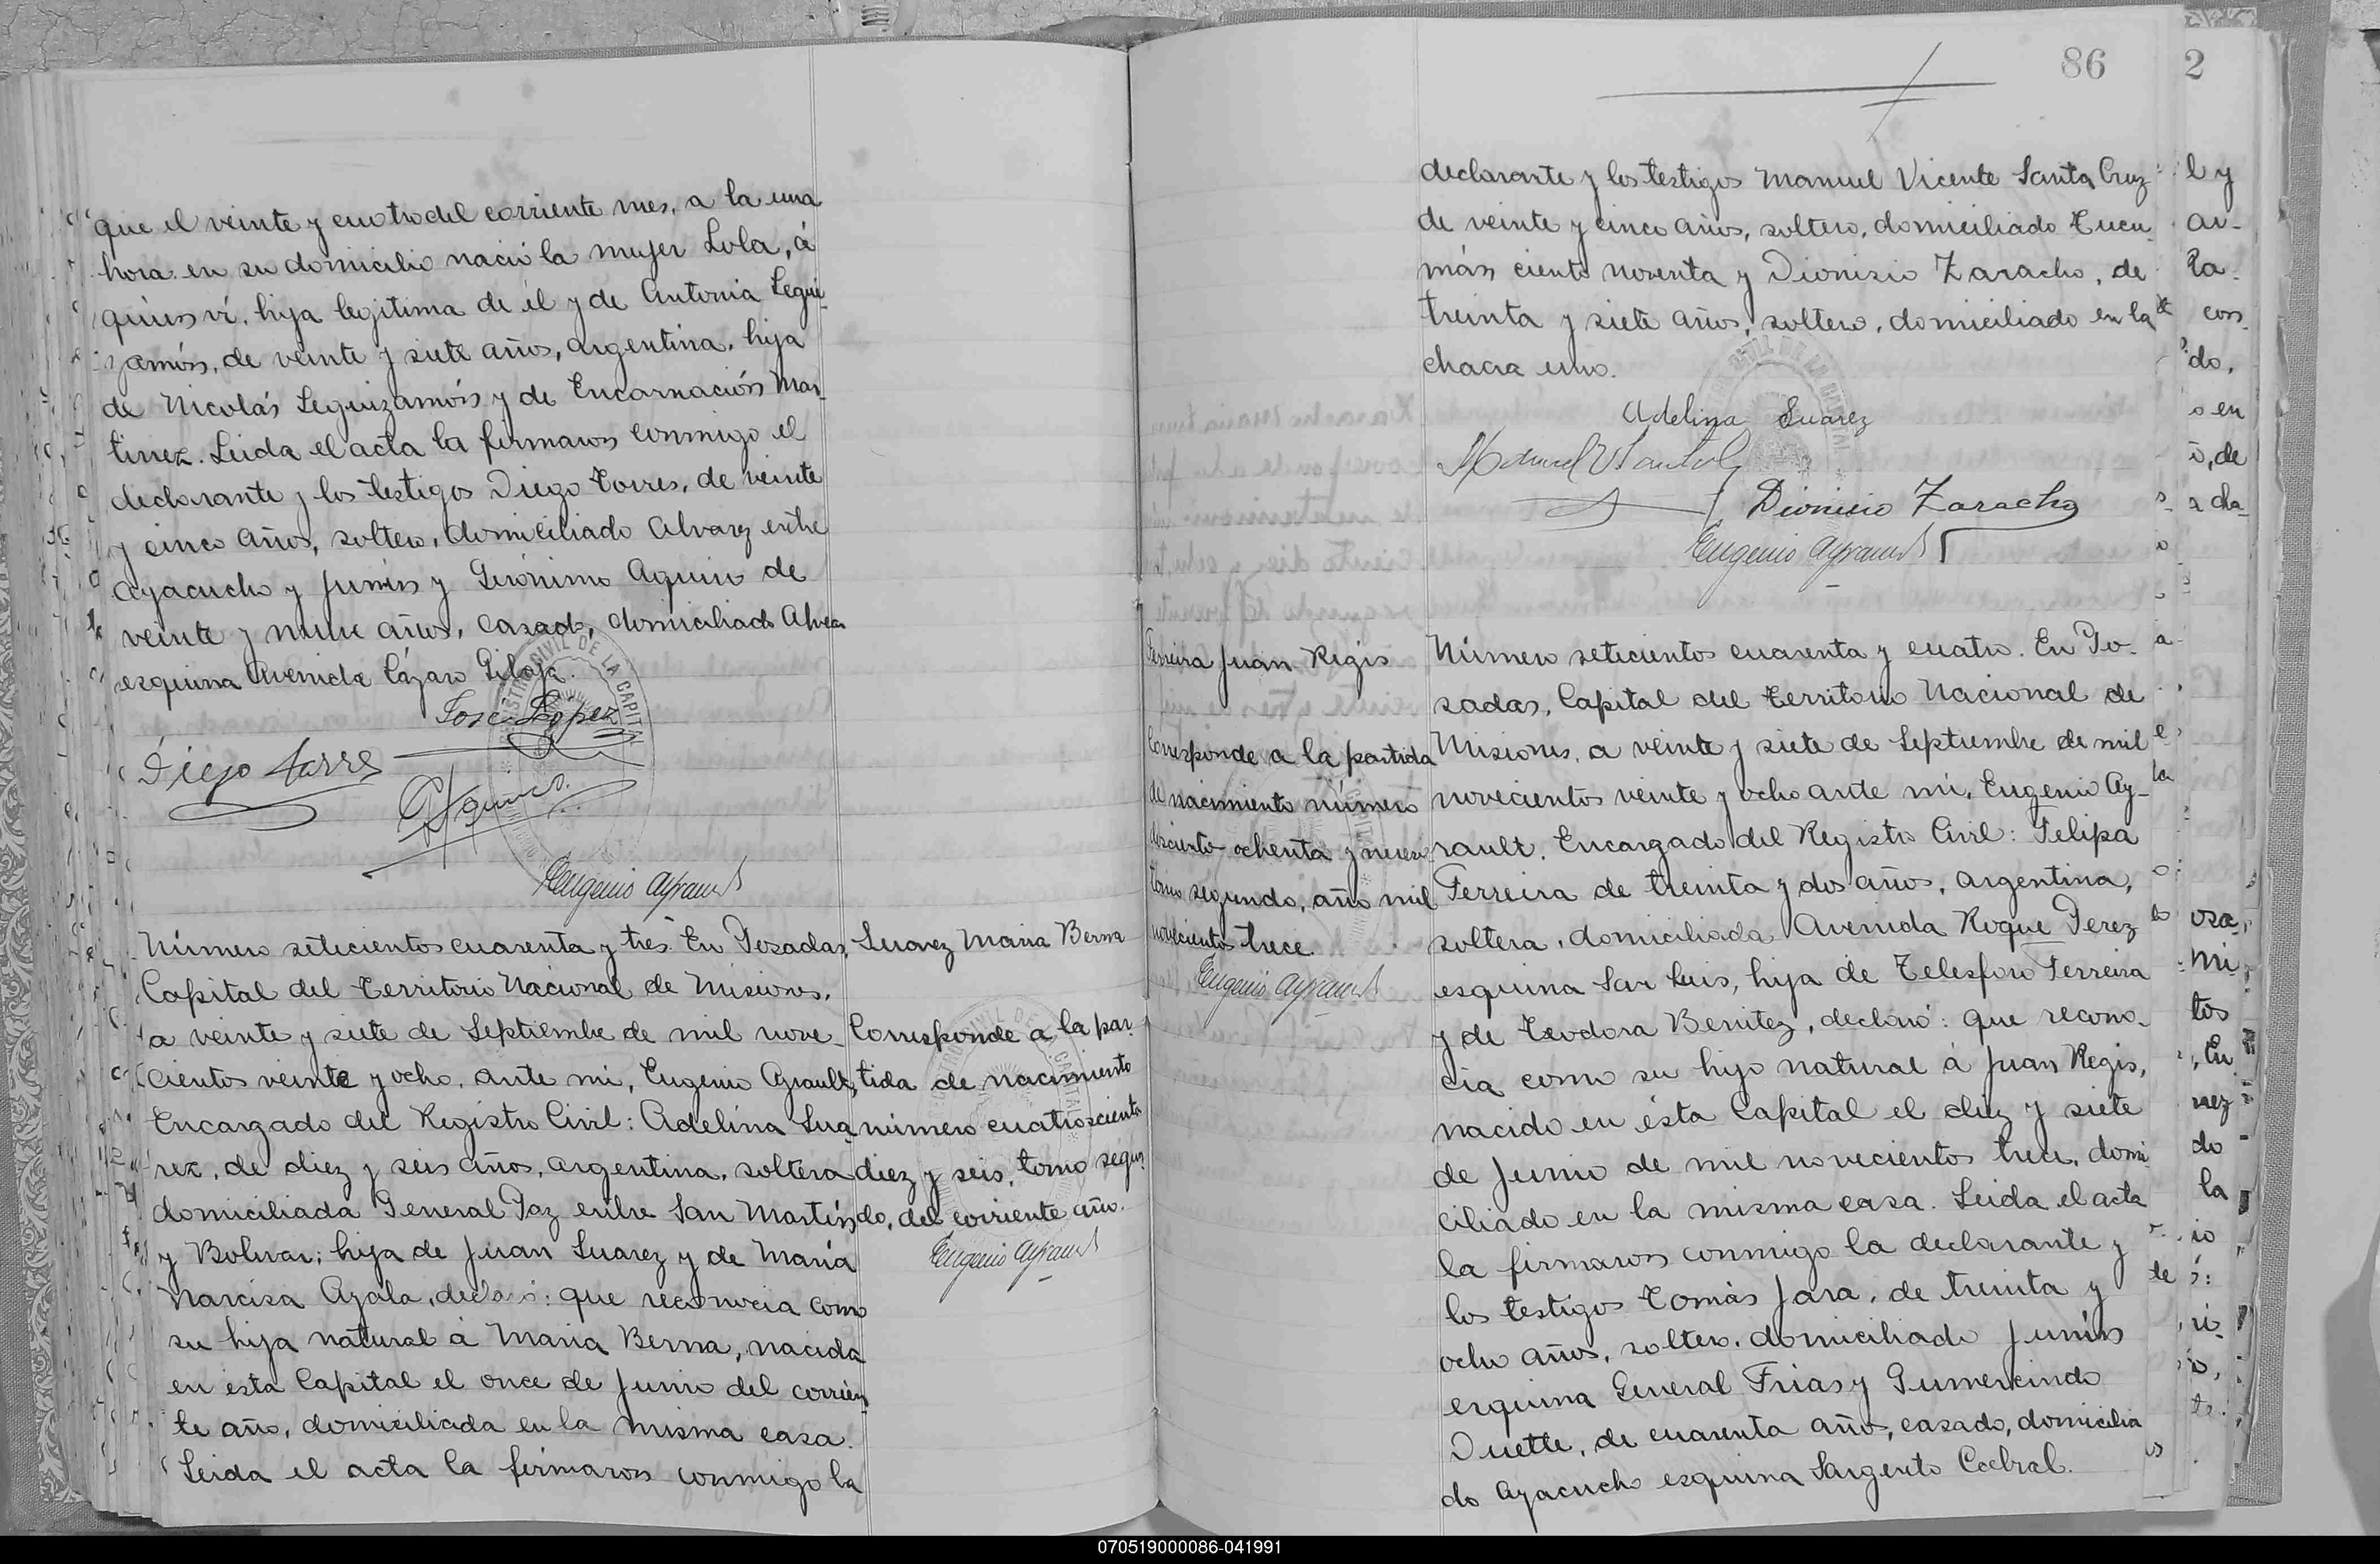 que el veinte y cuatro del corriente mes, a la una
hora en su domicilio nació la mujer Lola, á
quien ví, hija legitima de él y de Antonia Legui-
zamón, de veinte y siete años, argentina, hija
de Nicolás Leguizamón y de Encarnación Mar-
tinez. Leida el acta la firmaron conmigo el
declarante y los testigos Diego Torres, de veinte
y cinco años, soltero, domiciliado Alvarez entre
Ayacucho y Junin y Gerónimo Aquino de
veinte y nueve años, casado, domiciliado
esquina Avenida Lázaro
José López
Diego Torres
Eugenio Ayrault
Número setecientos cuarenta y tres En Posadas,
Capital del Territorio Nacional de Misiones,
a veinte y siete de Septiembre de mil nove-
cientos veinte y ocho, ante mi, Eugenio Ayrault,
Encargado del Registro Civil: Adelina Sua
rez, de diez y seis años, argentina, soltera
domiciliada General Paz entre San Martín
y Bolivar; hija de Juan Suarez y de María
Narcisa Ayala, declaró: que reconocia como
su hija natural á Maria Berna, nacida
en esta Capital el once de Junio del corrien
te año, domiciliada en la misma casa.
Leida el acta la firmaron conmigo la
Suarez Maria Berna
Corresponde a la par
tida de nacimiento
número cuatroscientos
diez y seis, tomo segun
do, del corriente año.
Eugenio Ayrault
86
declarante y los testigos Manuel Vicente Santa Cruz
de veinte y cinco años, soltero, domiciliado Tucu-
mán ciento noventa y Dionisio Zaracho, de
treinta y siete años, soltero, domiciliado en la
chacra uno.
Adelina Suarez
Dionisio Zaracho
Eugenio Ayrault
Ferreira Juan Regis
Corresponde a la partida
de nacimiento número
doscientos ochenta y nueve
tomo segundo, año mil
novecientos trece.
Eugenio Ayrault
Número setecientos cuarenta y cuatro. En Po-
sadas, Capital del Territorio Nacional de
Misiones, a veinte y siete de Septiembre de mil
novecientos veinte y ocho ante mi, Eugenio Ay-
rault, Encargado del Registro Civil: Felipa
Ferreira de treinta y dos años, argentina,
soltera, domiciliada Avenida Roque Perez
esquina San Luis, hija de Telesforo Ferreira
y de Teodora Benitez, declaró: que recono-
cia como su hijo natural á Juan Regis,
nacido en ésta Capital el diez y siete
de Junio de mil novecientos trece, domi
ciliado en la misma casa. Leida el acta
la firmaron conmigo la declarante y
los testigos Tomás Jara, de treinta y
ocho años, soltero, domiciliado Junin
esquina General Frias y Gumercindo
Duette, de cuarenta años, casado, domicilia
do Ayacucho esquina Sargento Cabral.
2
l y
av-
la-
con-
do,
o en
ó, de
tos
, En
nez
do
la
io
070519000086-041991